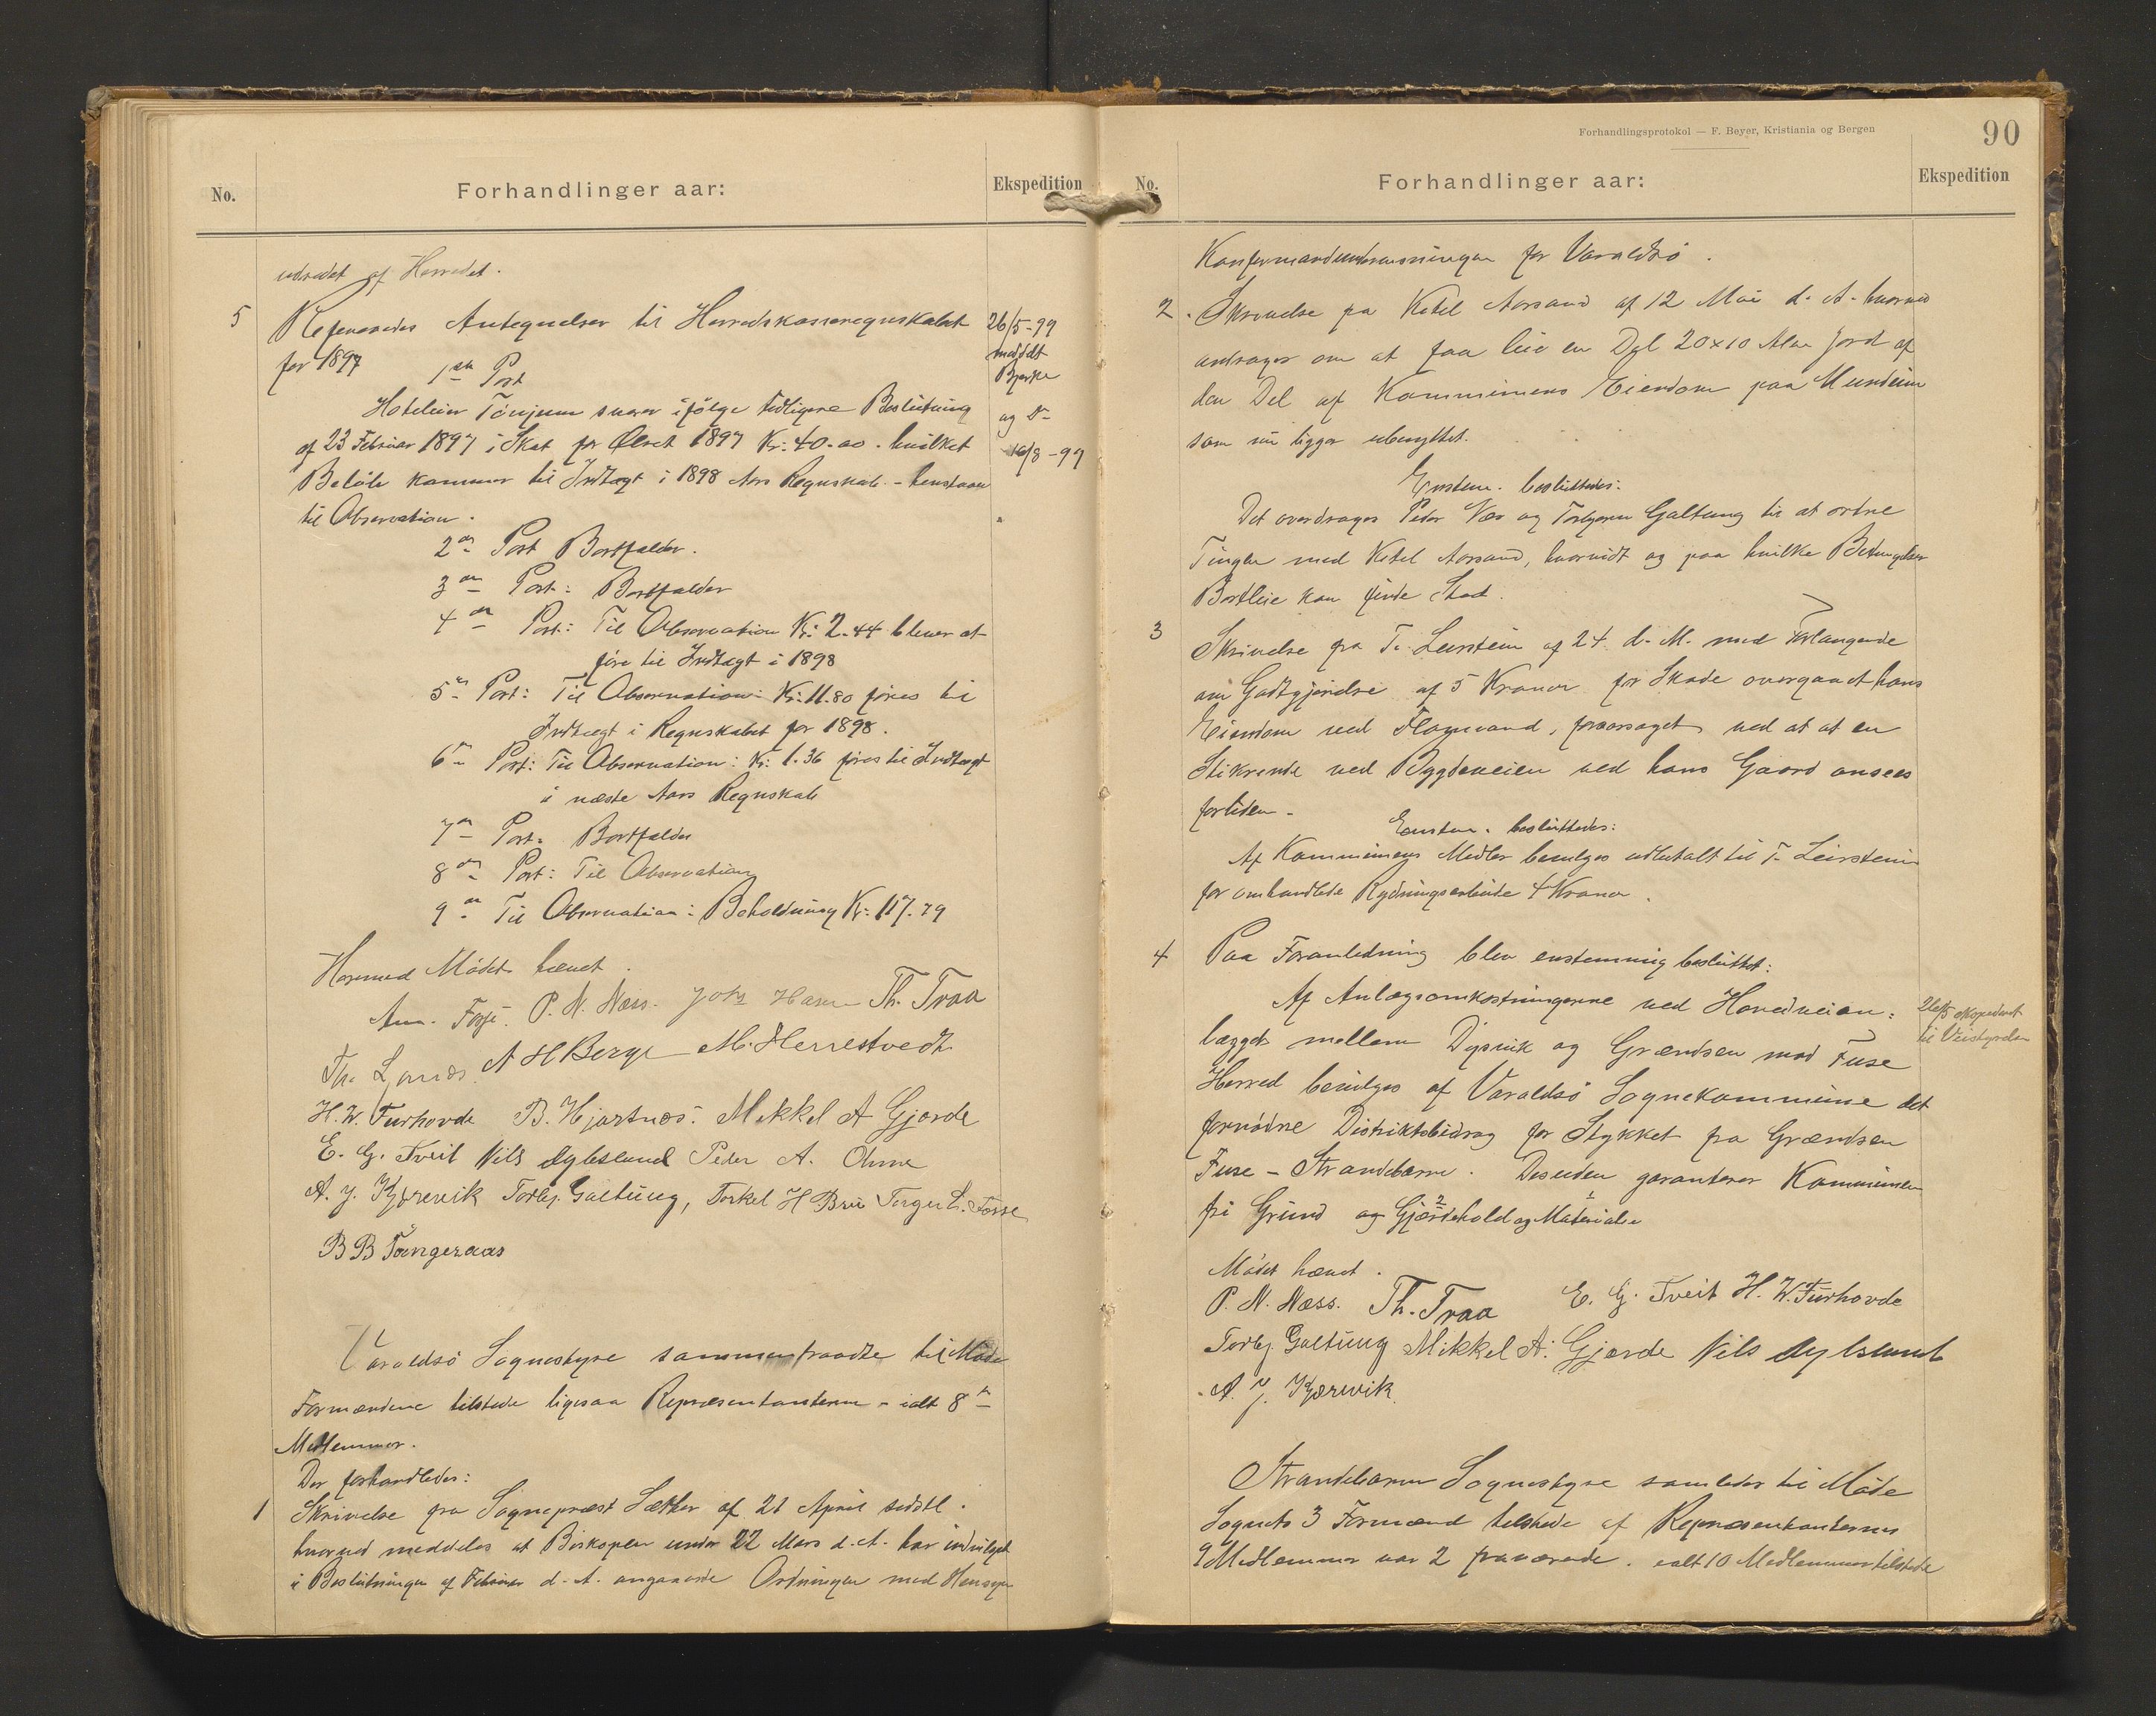 No.
Forhandlinger aar:
Ekspedition
udredet af Herredet.
5
Refereredes Antegnelser til Herredskasseregnskabet
for 1897
26/5-99
meddelt
Bjerke
og Do
16/8-99
1ste Post
Hoteleier Tönjum svarer ifölge tidligere Beslutning
af 23 Februar 1897 i Skat for Ölret 1897 Kr: 40.00. hvilket
Belöb kommer til Indtægt i 1898 Aars Regnskab. - henstaar
til Observation.
2den Post Bortfalder.
3die Post: Bortfalder
4de Post: Til Observation Kr: 2.44 bliver at
före til Indtægt i 1898
5te Post: Til Observation: Kr: 11.80 föres til
Indtægt i Regnskabet for 1898.
6te Post: Til Observation: Kr: 1.36 föres til Indtægt
i næste Aars Regnskab
7de Post: Bortfalder
8de Post: Til Observation
9de Til Observation: Beholdning Kr: 117.79
Hermed Mödet hævet.
P. N. Næss. Th. Traa
A H Berge M. Herrestvedt
H. W. Furhovde B. Hjartnæs. Mikkel A Gjerde
E. G. Tveit Nils Ryleslund Peder A.
A. J. Kjærevik Torbj. Galtung, Torkel H Bru Torger L. Fosse
B B Tangeraas
Varaldsö Sognestyre sammentraadte til Möde
Formændene tilstede ligesaa Repræsentanterne - ialt 8te
Medlemmer.
Der forhandledes:
1
Skrivelse fra Sognepræst Sæther af 21 April sidstl.
hvorved meddeles at Biskopen under 22 Mars d. A. har indvilget
i Beslutningen af Februar d. A. angaaende Ordningen med Hensyn
Forhandlingsprotokol — F. Beyer, Kristiania og Bergen
90
No.
Forhandlinger aar:
Ekspedition
Konfirmandundervisningen for Varaldsö.
2.
Skrivelse fra Ketil Aarsand af 12 Mai d. A. hvorved
andrager om at faa leie en Del 20x10 Alen Jord af
den Del af Kommunens Eiendom paa Mundeim
som nu ligger ubenyttet.
Enstem. besluttedes:
Det overdrages Peder Næs og Torbjørn Galtung til at ordne
Tingen med Ketil Aarsand, hvorvidt og paa hvilke Betingelser
Bortleie kan finde Sted.
3
Skrivelse fra T. Leirstein af 24 d. M. med Forlangende
om Godtgjørelse af 5 Kroner for Skade overgaaet hans
Eiendom ved Flomvand, foraarsaget ved at at en
Stikrende ved Bygdeveien ved hans Gaard ansees
forliden.
Enstem. besluttedes:
Af Kommunens Midler bevilges udbetalt til T. Leirstein
for omhandlede Rydningsarbeide 4 Kroner.
4
Paa Foranledning blev enstemmig besluttet:
Af Anlægsomkostningerne ved Hovedveian=
lægget mellem Dysvik og Grændsen mod Fuse
Herred bevilges af Varaldsö Sognekommune det
fornödne Distriktsbidrag for Stykket fra Grændsen
Fuse - Strandebarm. Desuden garanterer Kommunen
fri Grund og Gjærdehold og Materialer
26/5 ekspederet
til Veistyrelsen
Mödet hævet.
P. N. Næss. Th. Traa E. G. Tveit H. W. Furhovde
Torbj Galtung Mikkel A. Gjerde Nils Ryleslund
A. J. Kjærevik
Strandebarm Sognestyre samledes til Möde
Sognets 3 Formænd tilstede af Repræsentanternes
9 Medlemmer var 2 fraværende. ialt 10 Medlemmer tilstede